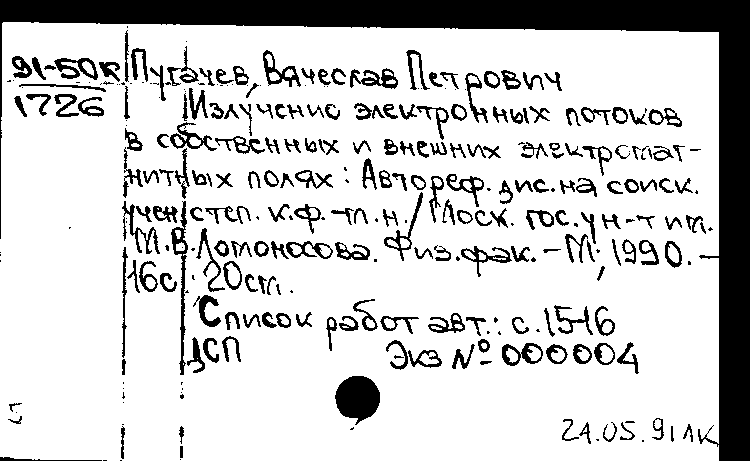 91-50к Пугачев, Вячеслав Петрович
1726 Излучение электронных потоков
в собственных и внешних электромаг-
нитных полях : Автореф. дис. на соиск.
учен. степ. к.ф.-м.н. / Моск. гос. ун-т им.
М.В. Ломоносова. Физ. фак. - М., 1990. -
16с. : 20см.
Список работ авт.: с. 15-16
ДСП Экз № 000004
24.05.91 ЛК